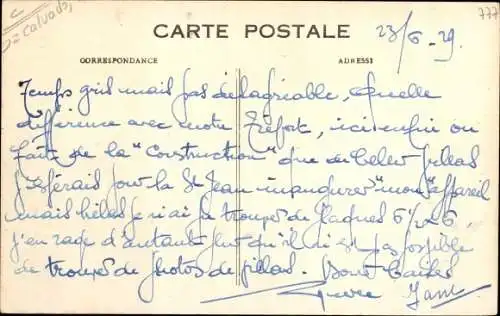 Calvados
777
CARTE POSTALE
23/6-29
CORRESPONDANCE
ADRESSE
Temps gris mais pas désagréable, quelle
différence avec notre Tréport, ici enfin on
fait de la "Construction" que de belles villas
J'espérais pour la St Jean inaugurer "mon" appareil
mais hélas je n'ai pu trouver de plaques 6½ x 6,
j'enrage d'autant plus qu'il n'est pas possible
de trouver de photos de villas. Bons Baisers